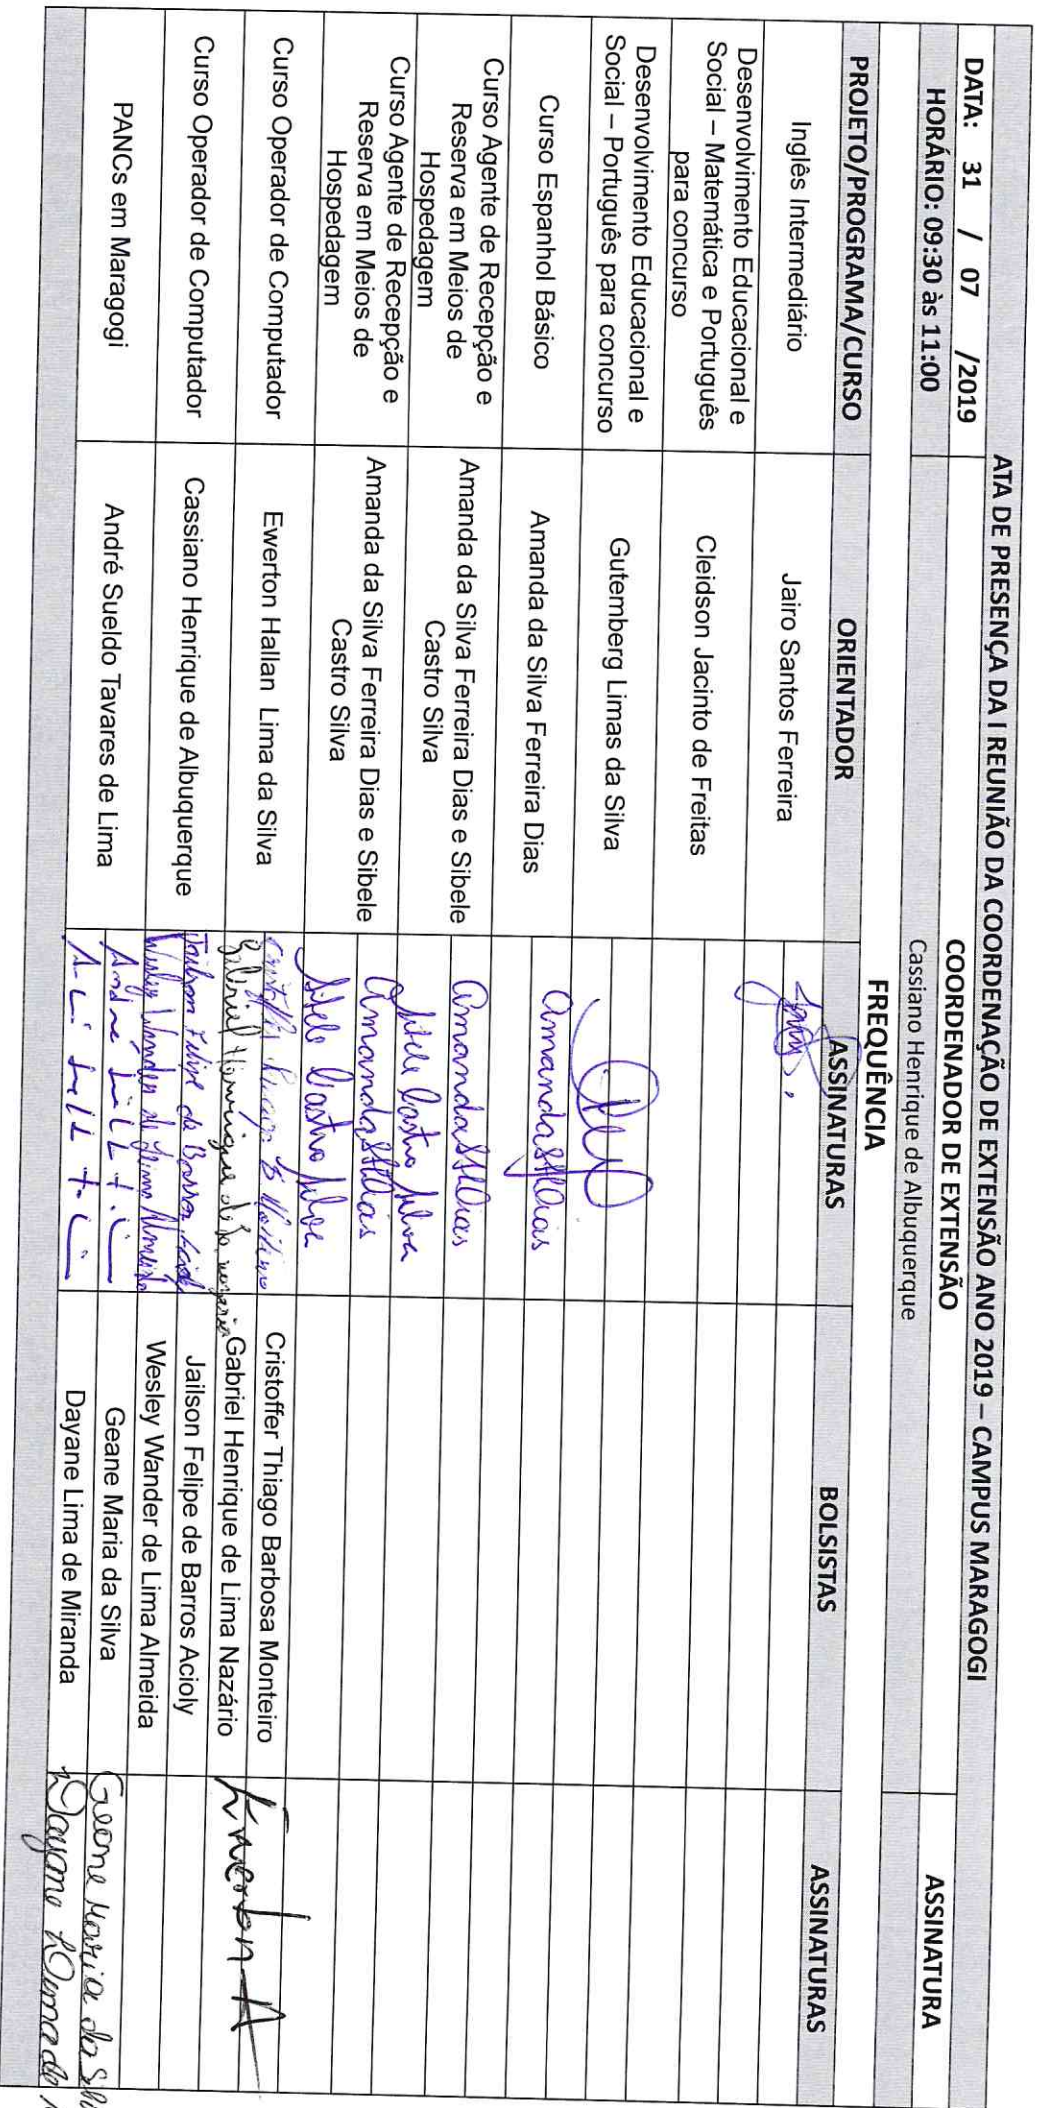 ATA DE PRESENÇA DA I REUNIÃO DA COORDENAÇÃO DE EXTENSÃO ANO 2019 – CAMPUS MARAGOGI
DATA: 31 / 07 /2019
COORDENADOR DE EXTENSÃO
ASSINATURA
HORÁRIO: 09:30 às 11:00
Cassiano Henrique de Albuquerque
FREQUÊNCIA
PROJETO/PROGRAMA/CURSO
ORIENTADOR
ASSINATURAS
BOLSISTAS
ASSINATURAS
Inglês Intermediário
Jairo Santos Ferreira
Desenvolvimento Educacional e
Social – Matemática e Português
para concurso
Cleidson Jacinto de Freitas
Desenvolvimento Educacional e
Social – Português para concurso
Gutemberg Limas da Silva
Curso Espanhol Básico
Amanda da Silva Ferreira Dias
AmandaSFDias
Curso Agente de Recepção e
Reserva em Meios de
Hospedagem
Amanda da Silva Ferreira Dias e Sibele
Castro Silva
AmandaSFDias
Sibele Castro Silva
Curso Agente de Recepção e
Reserva em Meios de
Hospedagem
Amanda da Silva Ferreira Dias e Sibele
Castro Silva
AmandaSFDias
Sibele Castro Silva
Curso Operador de Computador
Ewerton Hallan Lima da Silva
Cristoffer Thiago Barbosa Monteiro
Gabriel Henrique de Lima Nazário
Curso Operador de Computador
Cassiano Henrique de Albuquerque
Jailson Felipe de Barros Acioly
Jailson Felipe de Barros Acioly
Wesley Wander de Lima Almeida
Wesley Wander de Lima Almeida
PANCs em Maragogi
André Sueldo Tavares de Lima
Geane Maria da Silva
Geane Maria da
Dayane Lima de Miranda
Dayane Lima de